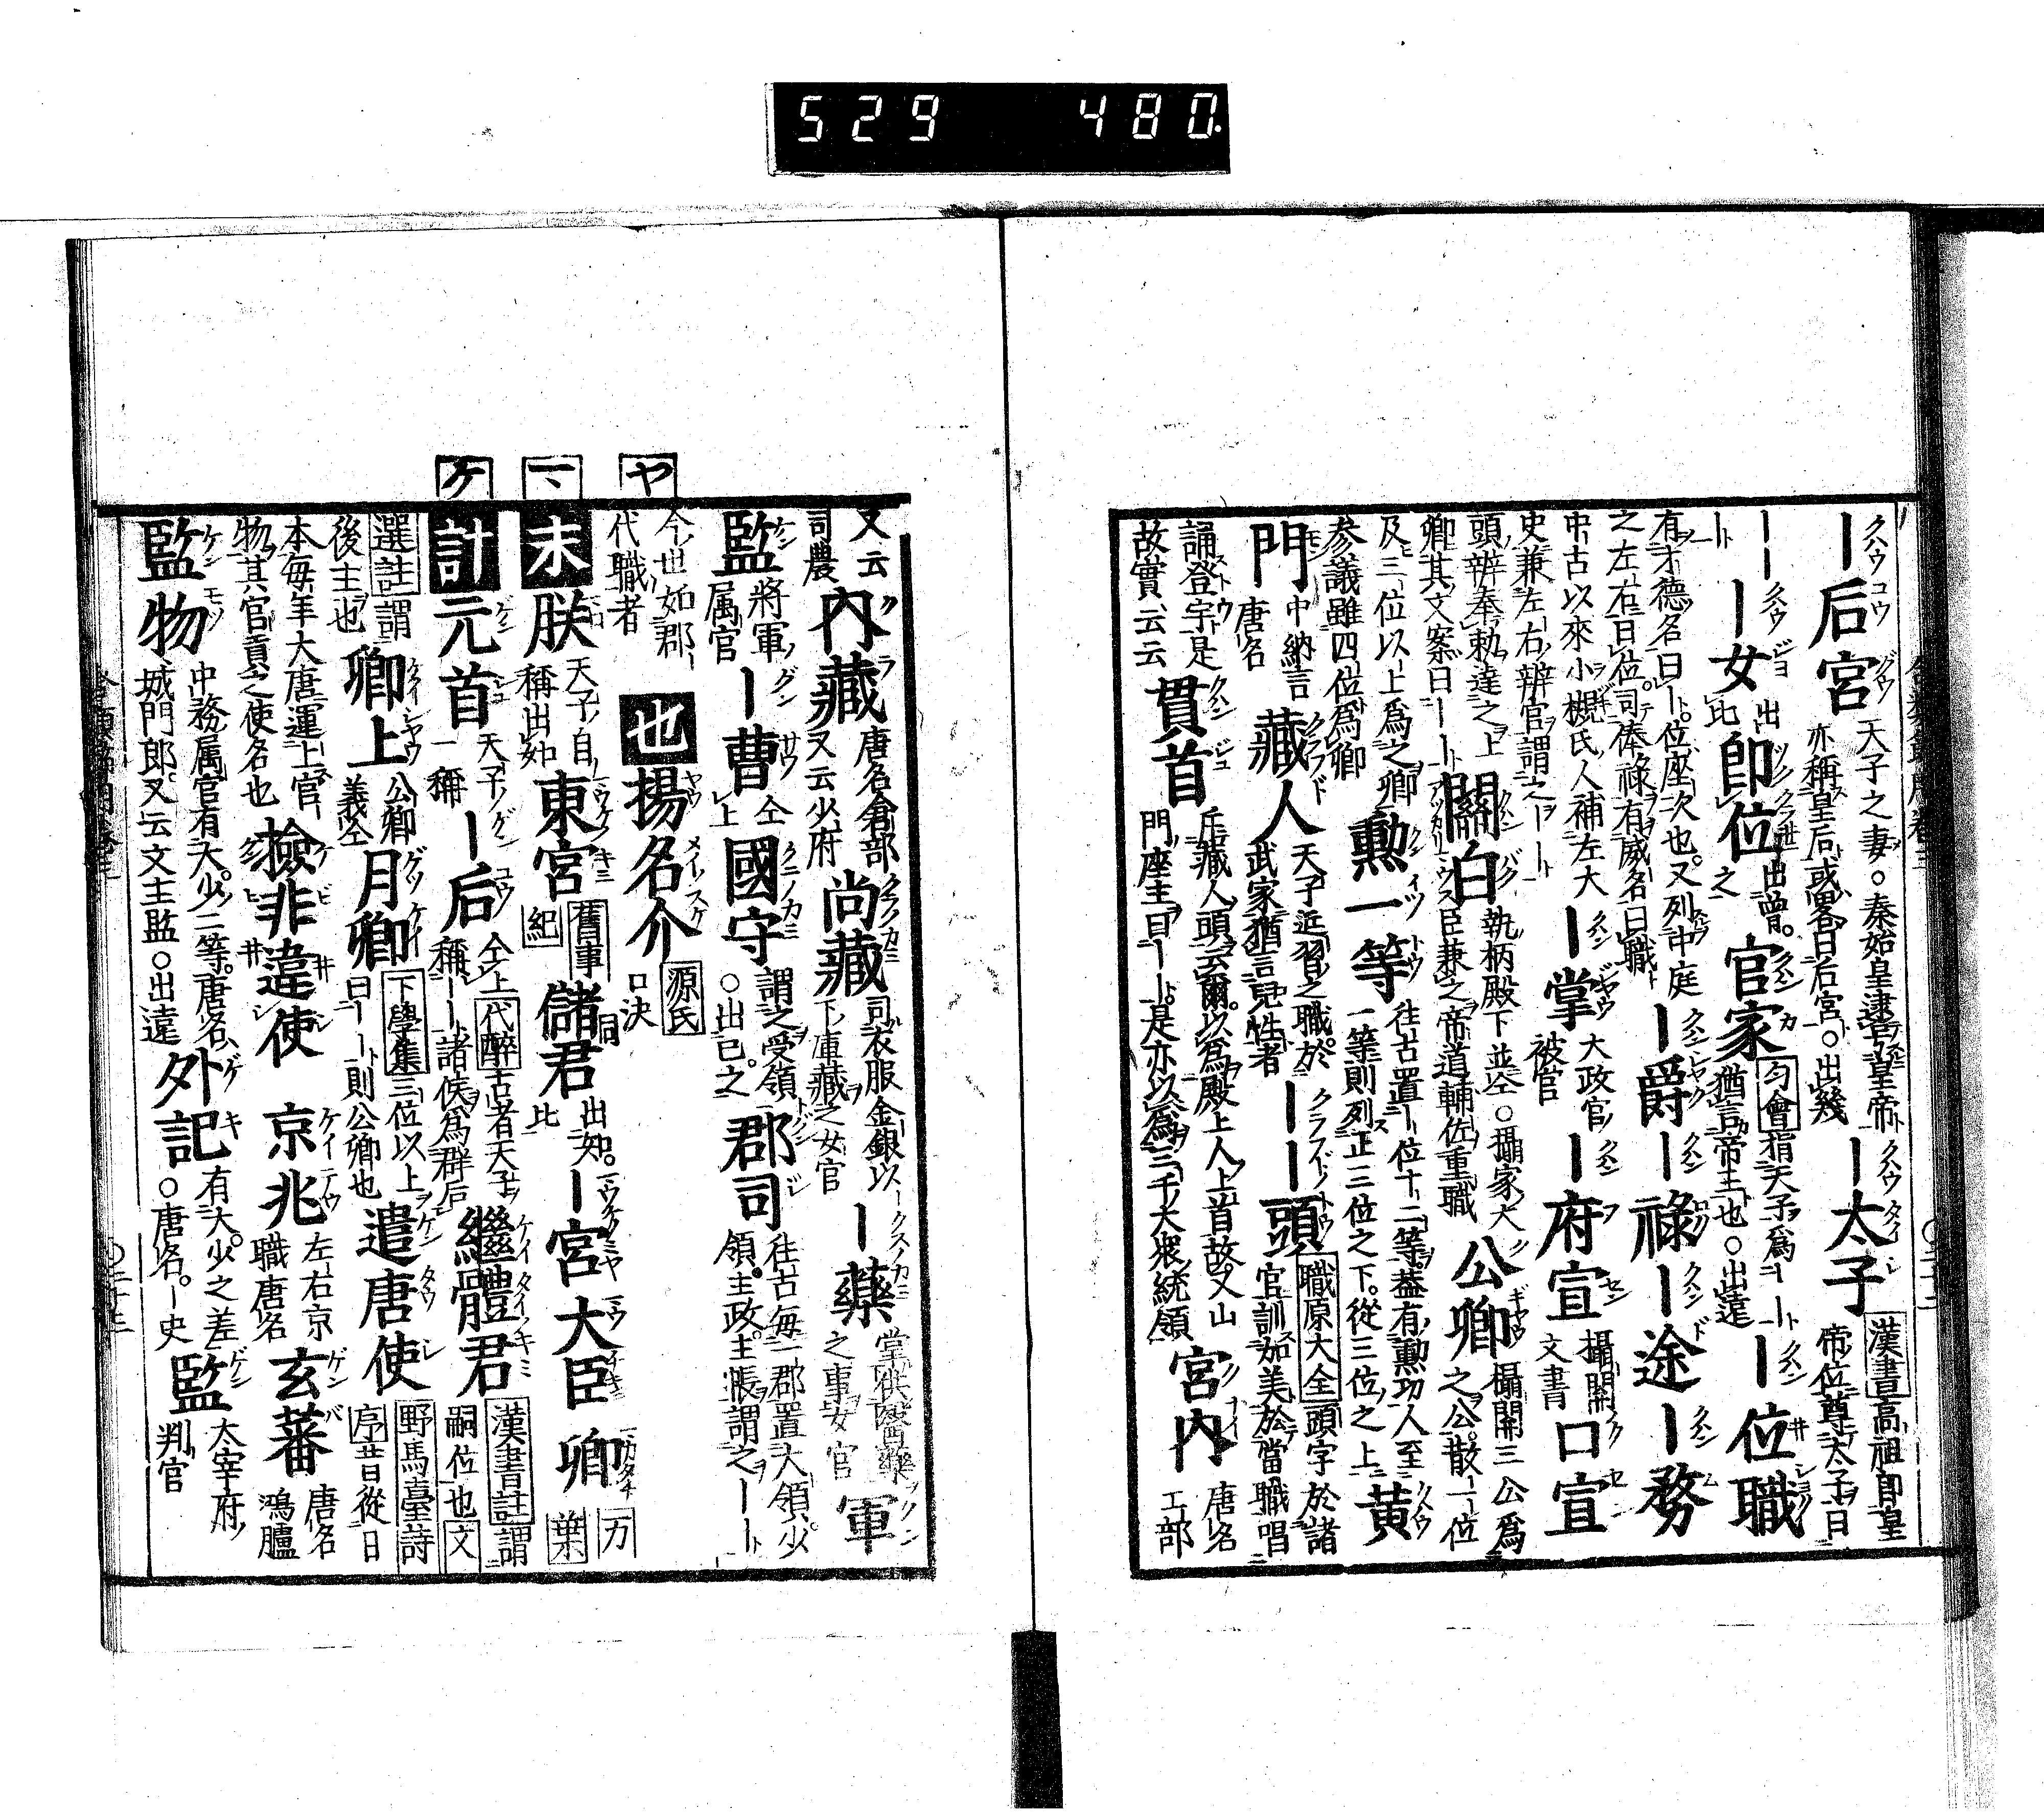 529 480.
｜后宮 天子之妻○秦始皇逮号皇帝亦稱皇后或畧曰后宮○出幾 ｜太子 漢書高祖即皇帝位尊太子曰
｜｜ ｜女 出 比 即位 出曾 之 官家 匀會指天子爲｜｜猶言帝王也○出遠 ｜位職
有才德名曰｜位座次也又列中庭之左右曰位司俸祿有威名曰職 ｜爵 ｜祿 ｜途 ｜務
中古以來小槻氏人補左大史兼左右辨官謂之｜｜ ｜掌 大政官被官 ｜府宣 攝關文書 口宣
頭辨奉勅達之上卿其文案曰｜｜ 關白 執柄殿下並仝○攝家大臣兼之帝道輔佐重職 公卿 攝關三公爲之公散一位
及三位以上爲之卿参議雖四位爲卿 勳一等 往古置｜位十二等葢有勳功人至一等則列正三位之下從三位之上 黄
門 中納言唐名 藏人 天子近習之職於武家猶言兒性者 ｜｜頭 職原大全頭字於諸官訓加美於當職唱
誦登宇是故實云云 貫首 斥藏人頭云爾以爲殿上人上首故又山門座主曰｜｜是亦以爲三千大衆統領 宮内 唐名工部
又云司農 内藏 唐名倉部又云少府 尚藏 司衣服金銀以下庫藏之女官 ｜藥 掌供醫藥之事女官 軍
監 將軍属官 ｜曹 仝上 國守 謂之受領○出已之 郡司 往古毎一郡置大領少領主政主帳謂之｜｜
ヤ
今世如郡代職者 也 揚名介 源氏口決
マ
末 朕 天子自稱出如 東宮 舊事紀 儲君 同出如比 ｜宮 大臣 卿 万葉
ケ
計 元首 天子一稱 ｜后 仝上稱｜｜ 代醉古者天子諸侯爲群后 繼體君 漢書註謂嗣位也文
選註謂後主也 卿上 公卿義仝 月卿 下學集三位以上曰｜｜則公卿也 遣唐使 野馬臺詩序昔從日
本毎年大唐運上官物其官貢之使名也 檢非違使 京兆 左右京職唐名 玄蕃 唐名鴻臚
監物 中務属官有大少二等唐名城門郎又云文主監○出遠 外記 有大少之差○唐名｜史 監 太宰府判官